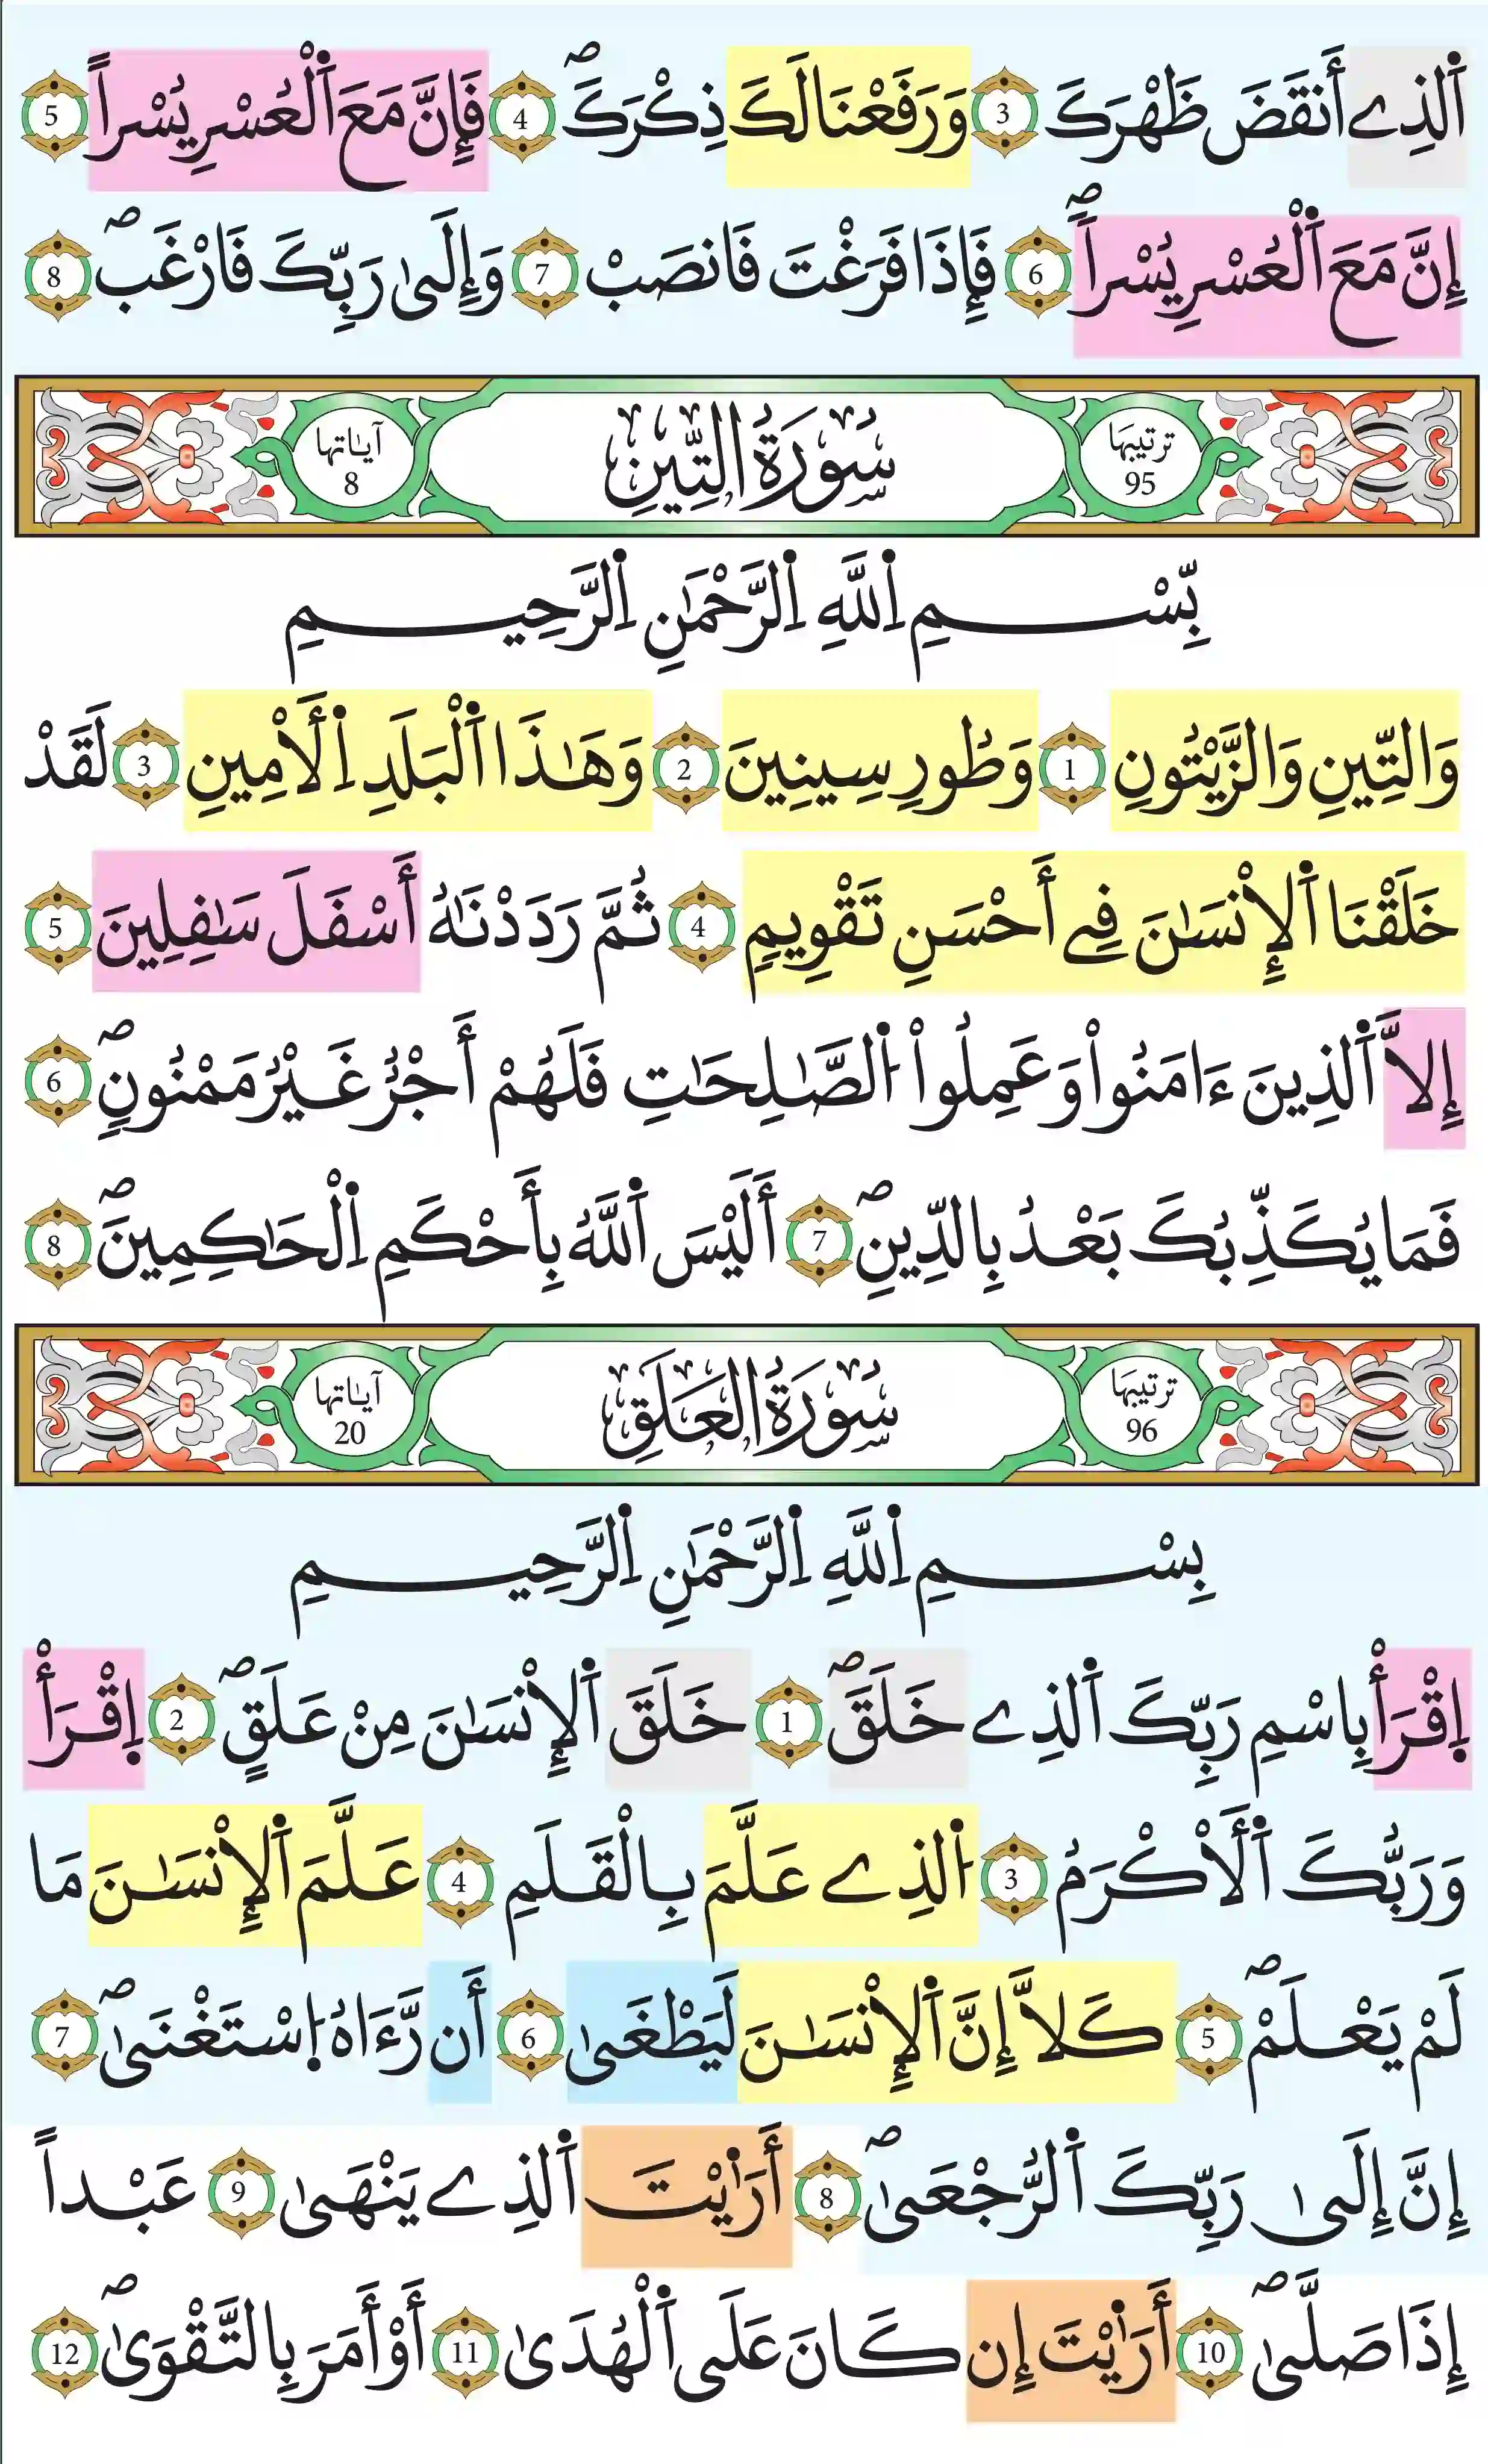 اَ۬لذِےٓ أَنقَضَ ظَهْرَكَ 3 وَرَفَعْنَا لَكَ ذِكْرَكَۖ 4 فَإِنَّ مَعَ اَ۬لْعُسْرِ يُسْراً 5
إِنَّ مَعَ اَ۬لْعُسْرِ يُسْراٗۖ 6 فَإِذَا فَرَغْتَ فَانصَبْ 7 وَإِلَىٰ رَبِّكَ فَارْغَبۖ 8
ترتيبها 95 سُورَةُ التِّينِ آياتها 8
بِّسْمِ اِ۬للَّهِ اِ۬لرَّحْمَٰنِ اِ۬لرَّحِيمِ
وَالتِّينِ وَالزَّيْتُونِ 1 وَطُورِ سِينِينَ 2 وَهَٰذَا اَ۬لْبَلَدِ اِ۬لَأْمِينِ 3 لَقَدْ
خَلَقْنَا اَ۬لْإِنْسَٰنَ فِےٓ أَحْسَنِ تَقْوِيمٍ 4 ثُمَّ رَدَدْنَٰهُ أَسْفَلَ سَٰفِلِينَ 5
إِلاَّ اَ۬لذِينَ ءَامَنُواْ وَعَمِلُواْ اُ۬لصَّٰلِحَٰتِ فَلَهُمْ أَجْرٌ غَيْرُ مَمْنُونٖۖ 6
فَمَا يُكَذِّبُكَ بَعْدُ بِالدِّينِۖ 7 أَلَيْسَ اَ۬للَّهُ بِأَحْكَمِ اِ۬لْحَٰكِمِينَۖ 8
ترتيبها 96 سُورَةُ الْعَلَقِ آياتها 20
بِسْمِ اِ۬للَّهِ اِ۬لرَّحْمَٰنِ اِ۬لرَّحِيمِ
اِ۪قْرَأْ بِاسْمِ رَبِّكَ اَ۬لذِے خَلَقَۖ 1 خَلَقَ اَ۬لْإِنْسَٰنَ مِنْ عَلَقٍۖ 2 اِ۪قْرَأْ
وَرَبُّكَ اَ۬لَأْكْرَمُ 3 اُ۬لذِے عَلَّمَ بِالْقَلَمِ 4 عَلَّمَ اَ۬لْإِنْسَٰنَ مَا
لَمْ يَعْلَمْۖ 5 كَلاَّ إِنَّ اَ۬لْإِنْسَٰنَ لَيَطْغَىٰ 6 أَن رَّءَاهُ اُ۪سْتَغْنَىٰۖ 7
إِنَّ إِلَىٰ رَبِّكَ اَ۬لرُّجْعَىٰۖ 8 أَرَٰيْتَ اَ۬لذِے يَنْهَىٰ 9 عَبْداً
إِذَا صَلَّىٰۖ 10 أَرَٰيْتَ إِن كَانَ عَلَى اَ۬لْهُدَىٰ 11 أَوْ أَمَرَ بِالتَّقْوَىٰۖ 12